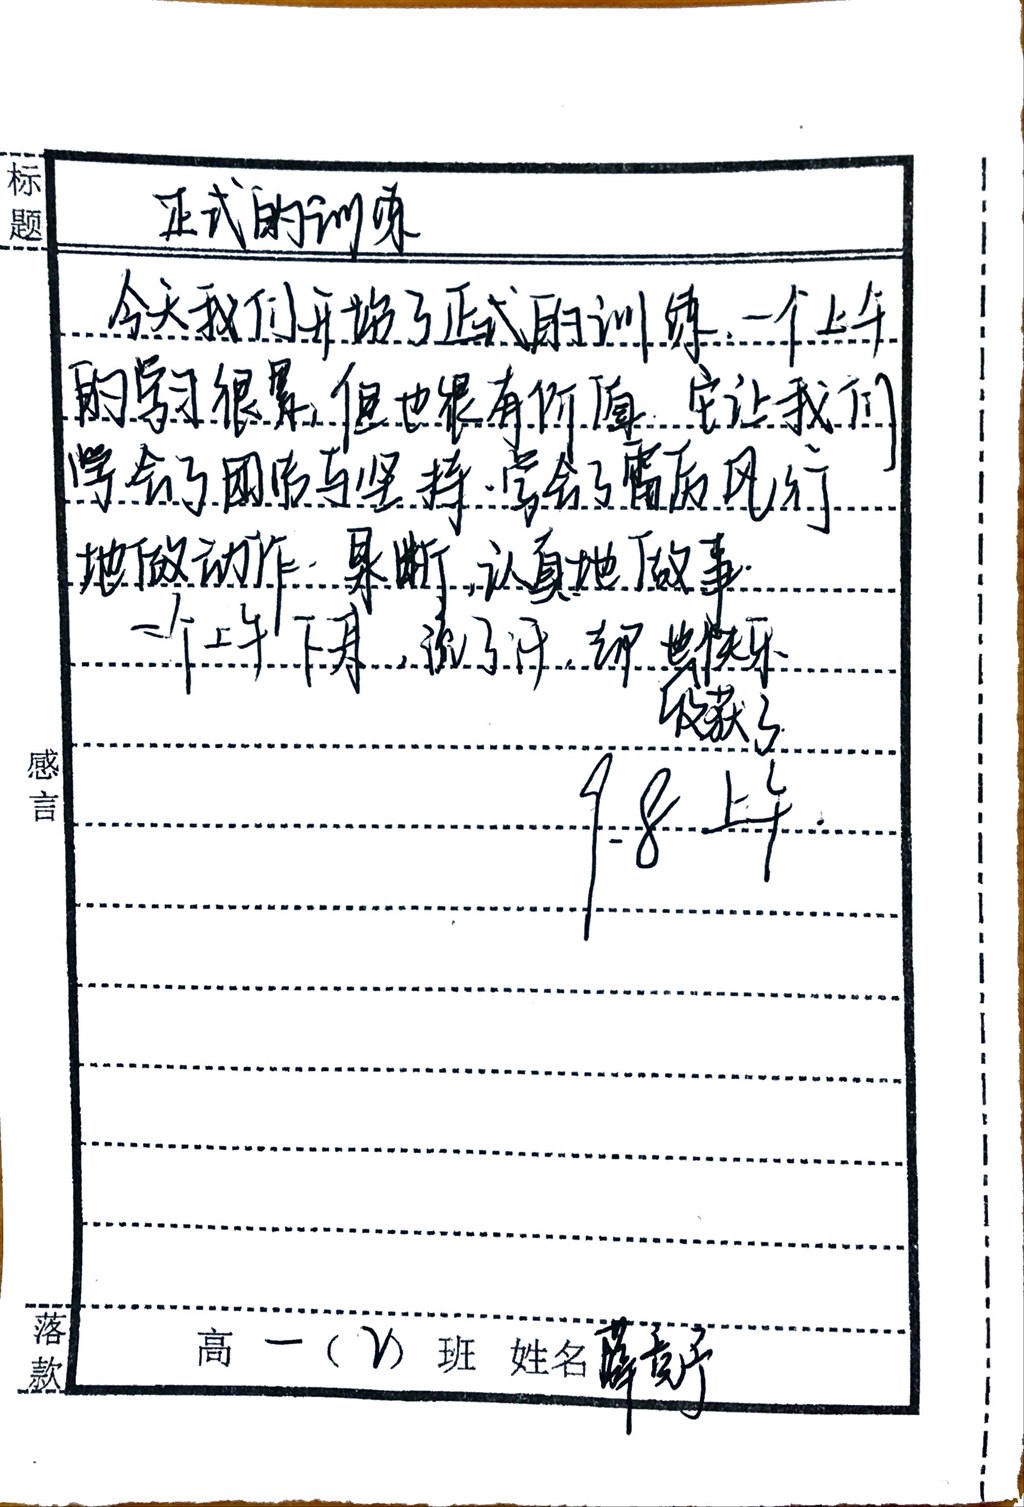 标题
正式的训练
今天我们开始了正式的训练.一个上午
的学习很累,但也很有价值.它让我们
学会了团结与坚持.学会了雷厉风行
地做动作.果断,认真地做事.
一个上午下来,流了汗,却也快乐
收获了
9.8 上午.
感言
落款
高一(2)班 姓名薛